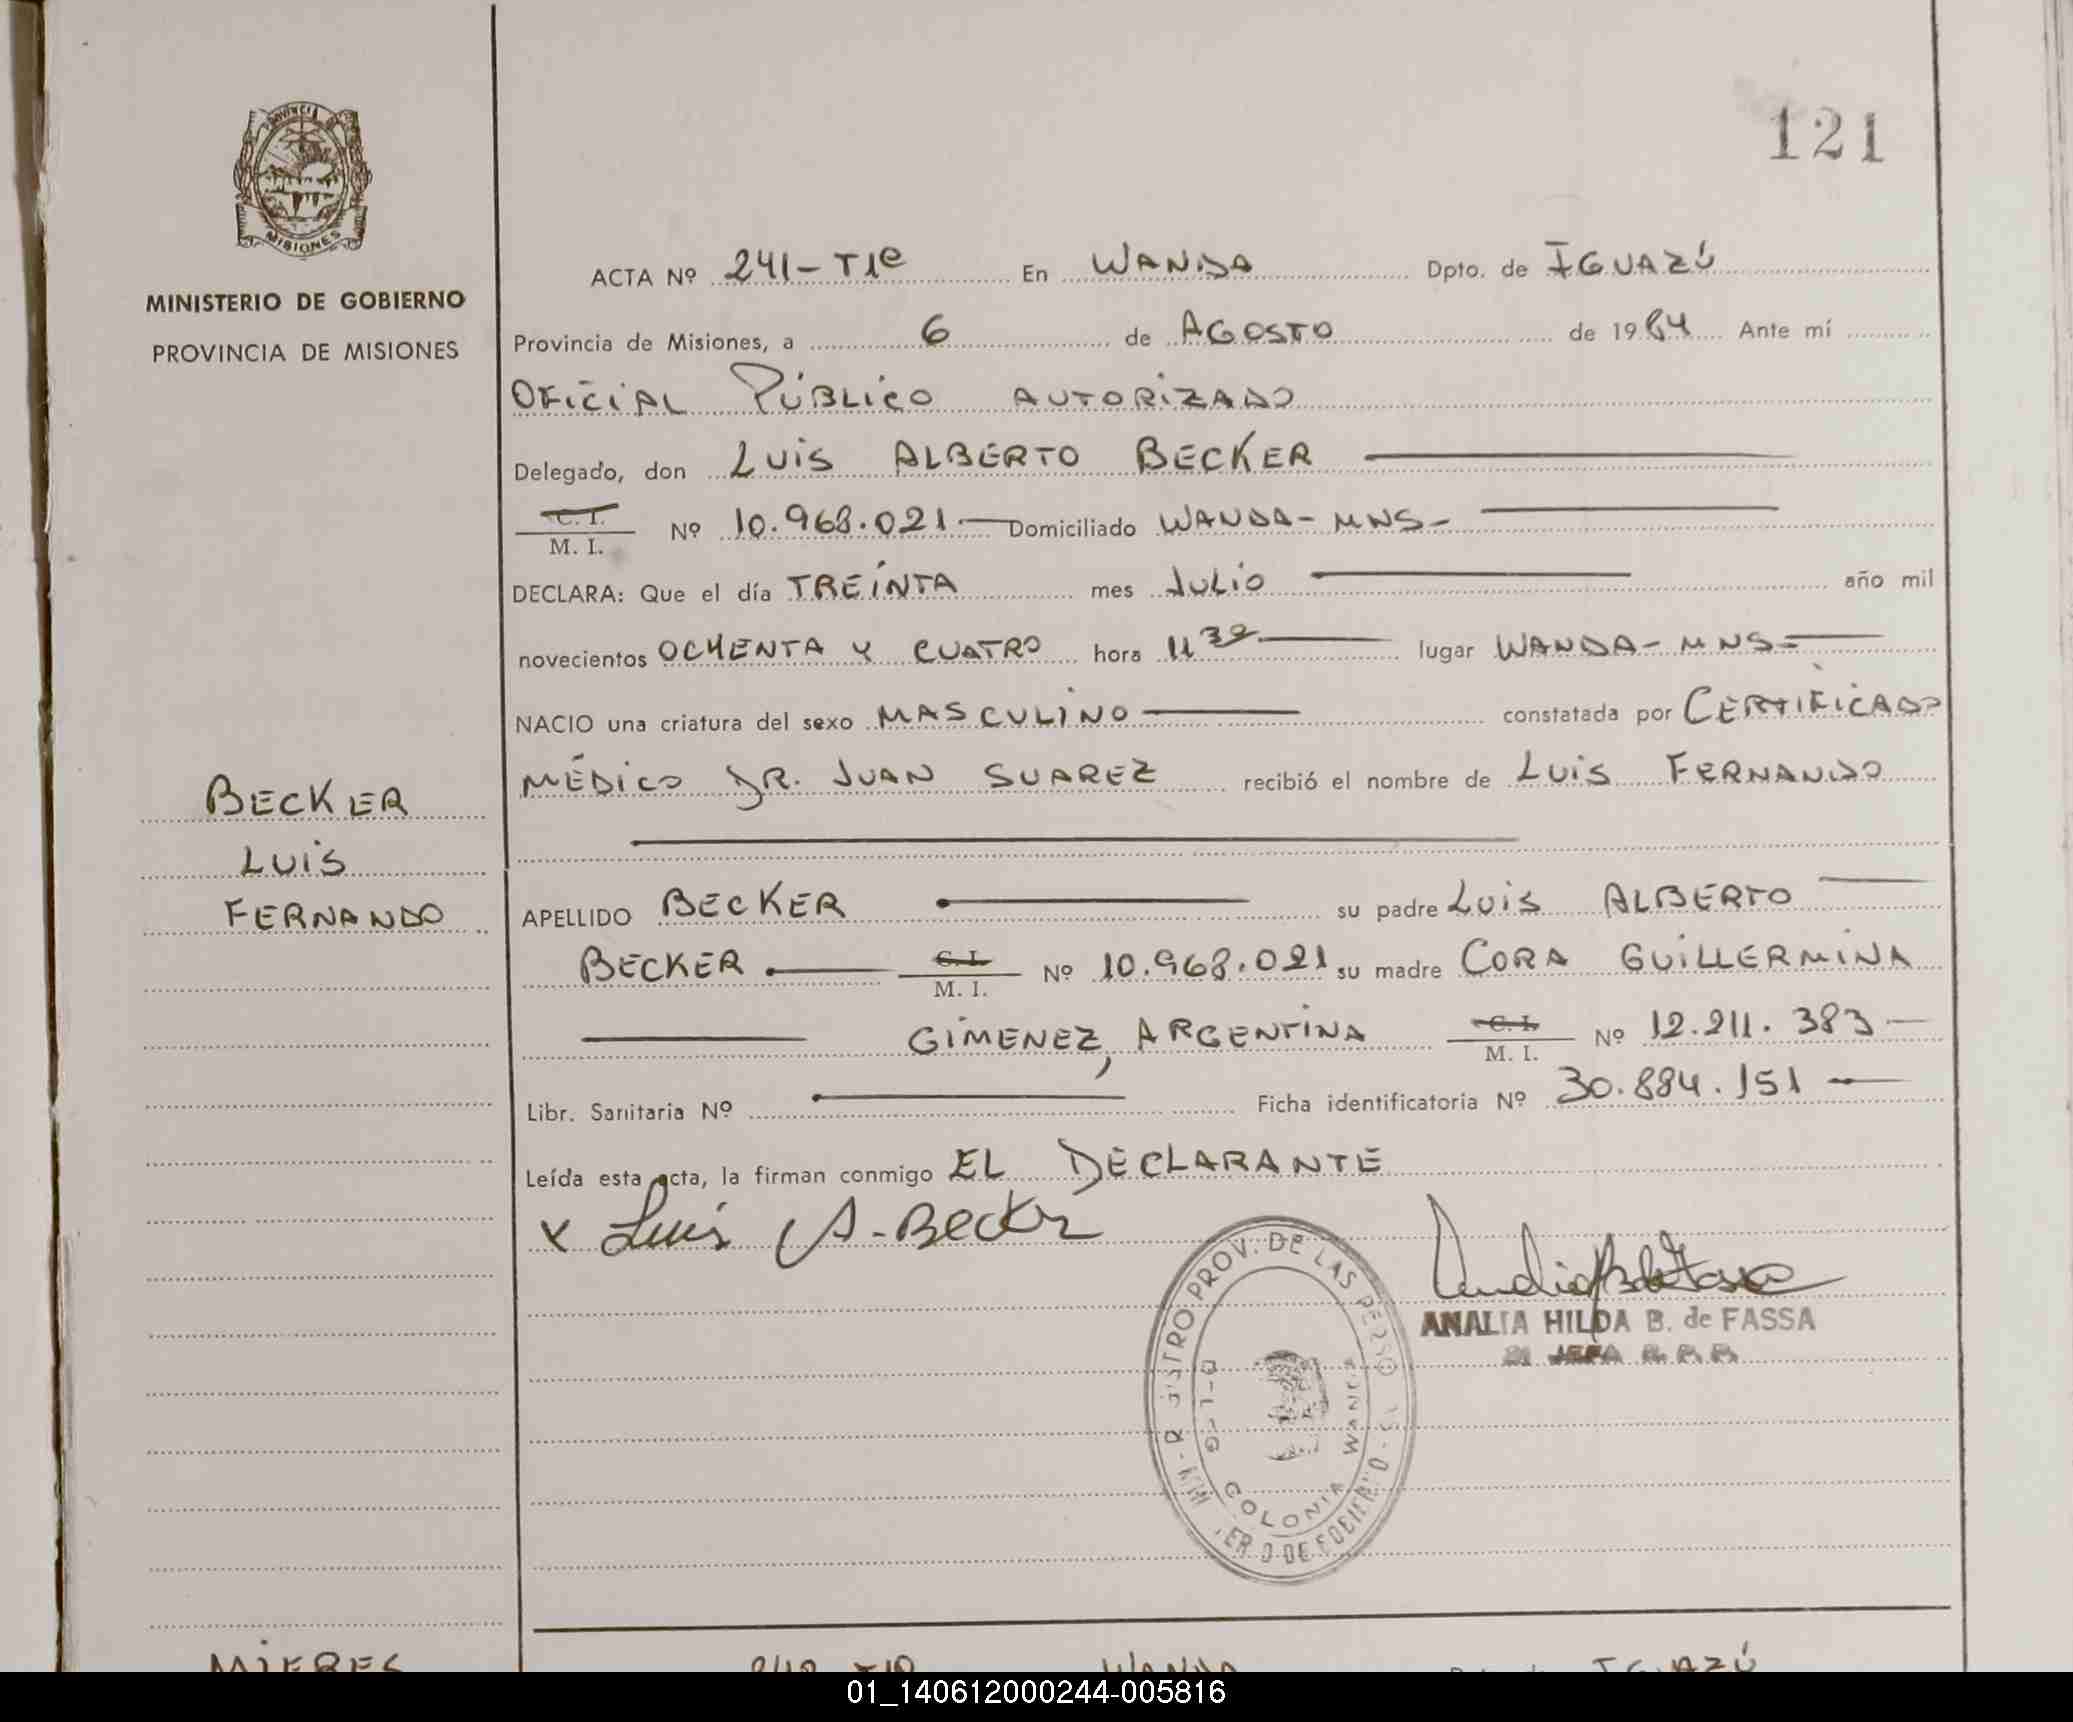 121
PROVINCIA DE
MISIONES
MINISTERIO DE GOBIERNO
PROVINCIA DE MISIONES
ACTA Nº 241-T1º En WANDA Dpto. de IGUAZÚ
Provincia de Misiones, a 6 de AGOSTO de 1984 Ante mí
OFICIAL PÚBLICO AUTORIZADO
Delegado, don LUIS ALBERTO BECKER
C. I.
M. I. Nº 10.968.021 Domiciliado WANDA-MNS-
DECLARA: Que el día TREINTA mes JULIO año mil
novecientos OCHENTA Y CUATRO hora 11 30 lugar WANDA-MNS-
NACIO una criatura del sexo MASCULINO constatada por CERTIFICADO
MÉDICO DR. JUAN SUAREZ recibió el nombre de LUIS FERNANDO
BECKER
LUIS
FERNANDO
APELLIDO BECKER su padre LUIS ALBERTO
BECKER C. I. M. I. Nº 10.968.021 su madre CORA GUILLERMINA
GIMENEZ, ARGENTINA C. I. M. I. Nº 12.211.383
Libr. Sanitaria Nº Ficha identificatoria Nº 30.884.151
Leída esta acta, la firman conmigo EL DECLARANTE
x Luis A. Becker
ANALIA HILDA B. de FASSA
JEFA
PROV. DE LAS
COLONIA WANDA
MIERES
WANDA IGUAZÚ
01_140612000244-005816